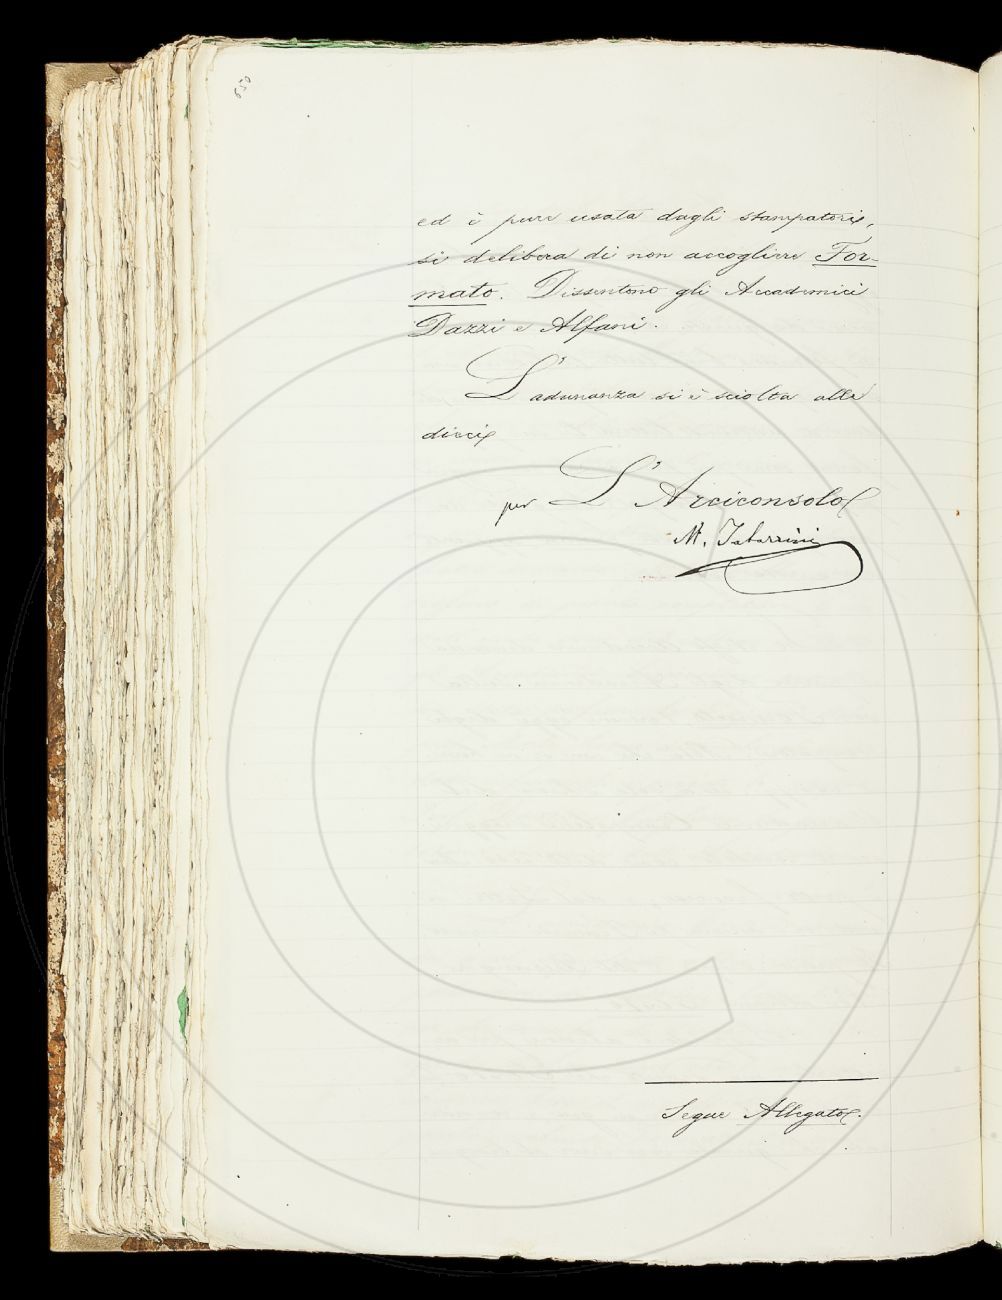 ed è pure usata dagli stampatori,
si delibera di non accogliere For-
mato. Dissentono gli Accademici
Dazzi e Alfani.
L'adunanza si è sciolta alle
dieci
per L'Arciconsolo
M. Tabarrini
Segue Allegato.